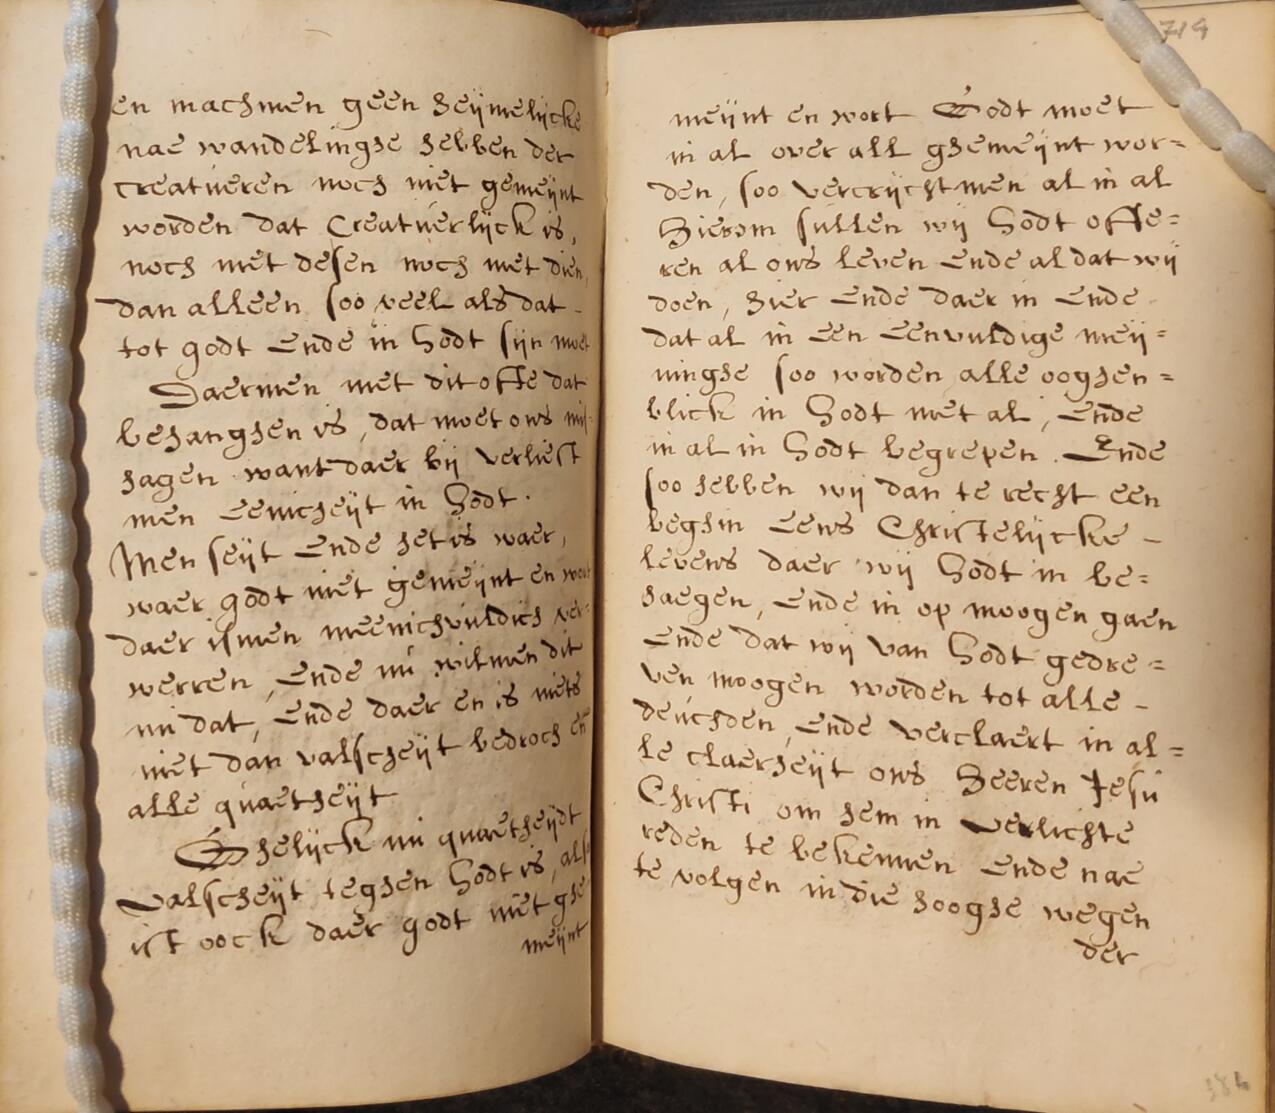 en machmen geen heijmelijcke
nae wandelinghe hebben der
creatueren noch niet gemeijnt
worden dat Creatuerlijck is,
noch met desen noch met dien,
dan alleen soo veel als dat -
tot godt ende in Godt sijn moet
Daermen met dit offe dat
behanghen is, dat moet ons mis-
hagen want daer bij verliest
men eenicheijt in Godt.
Men seijt ende het is waer,
waer godt niet gemeijnt en wort
daer ismen meenichvuldich ver-
werren, ende nu wilmen dit
nu dat, ende daer en is niets
niet dan valscheijt bedroch en
alle quaetheijt
Ghelijck nu quaetheijdt
valscheijt teghen Godt is, also
ist oock daer godt niet ghe
meijnt
714
meijnt en wort Godt moet
in al over all ghemeijnt wor=
den, soo vercrijchtmen al in al
Hierom sullen wij Godt offe=
ren al ons leven ende al dat wij
doen, hier ende daer in ende
dat al in een eenvuldige meij=
ninghe soo worden alle ooghen=
blick in Godt met al, ende
in al in Godt begrepen. Ende
soo hebben wij dan te recht een
beghin eens Christelijcke -
levens daer wij Godt in be=
haegen, ende in op moogen gaen
ende dat wij van Godt gedre=
ven moogen worden tot alle -
deuchden, ende verclaert in al=
le claerheijt ons Heeren Jesu
Christi om hem in verlichte
reden te bekennen ende nae
te volgen in die hooghe wegen
der